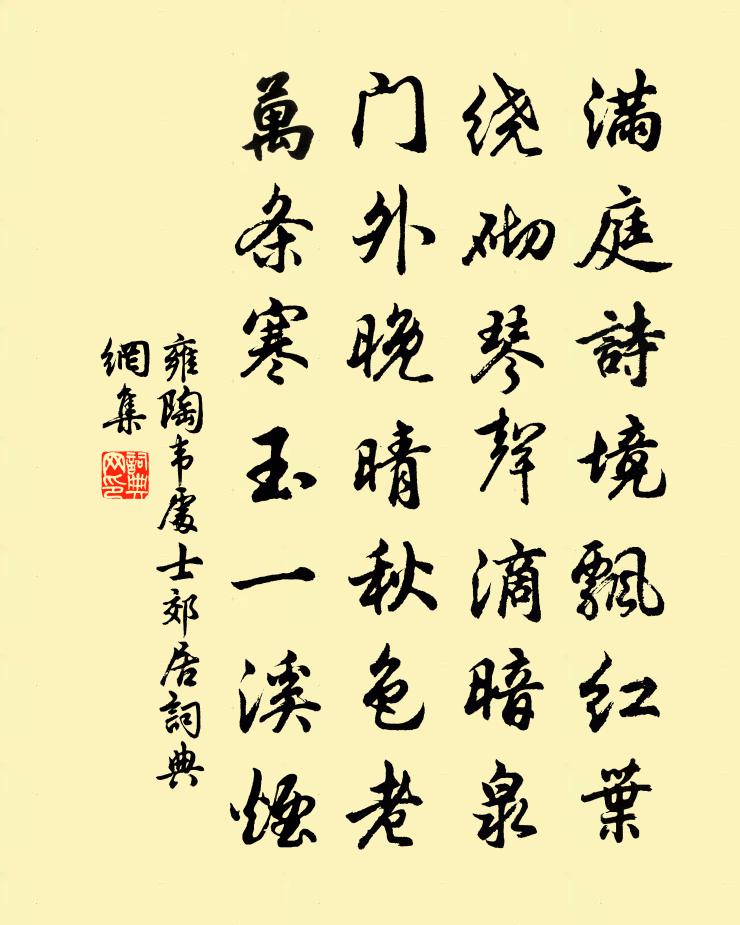 满庭詩境飄红葉
绕砌琴聲滴暗泉
门外晚晴秋色老
萬条寒玉一溪煙
雍陶韦處士郊居詞典
網集
詞典网印